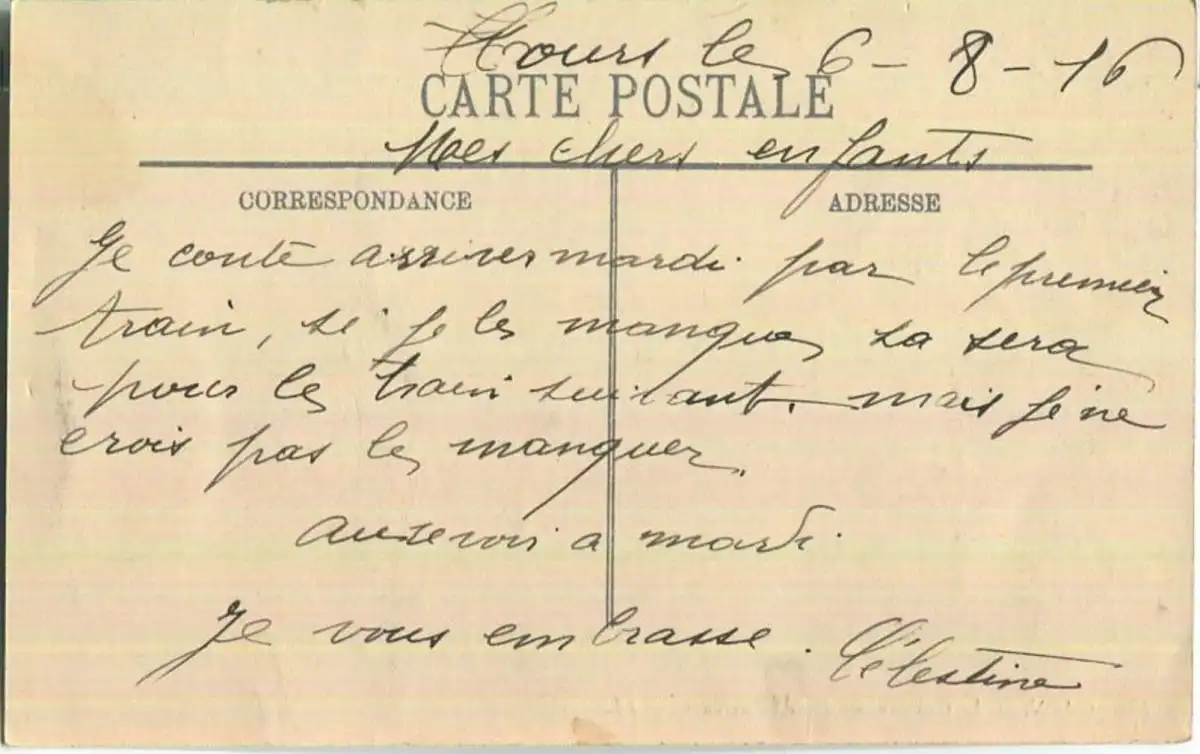 Tours le 6-8-16
CARTE POSTALE
Mes chers enfants
CORRESPONDANCE
ADRESSE
Je conte arriver mardi par le premier
train, si je le manque sa sera
pour le train suivant. mais je ne
crois pas le manquer.
aurevoir a mardi.
Je vous embrasse. Célestine